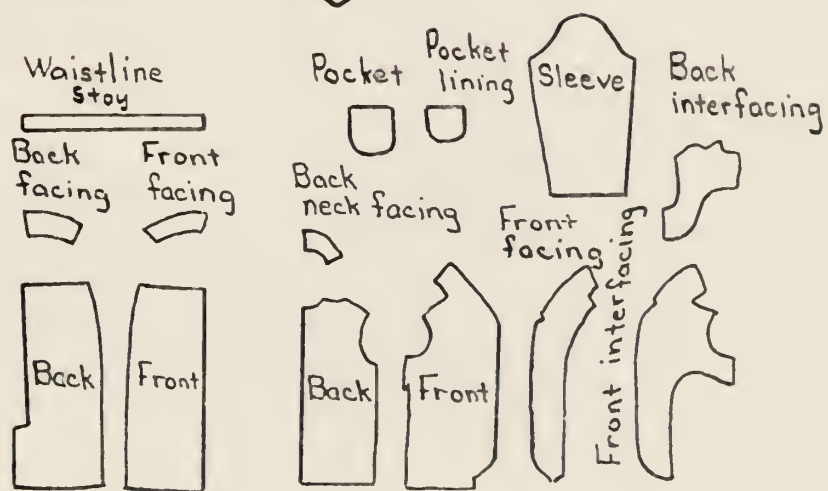 Waistline
Stay
Back
facing
Front
facing
Back
Front
Pocket
Pocket
lining
Sleeve
Back
interfacing
Back
neck facing
Front
facing
Front interfacing
Back
Front